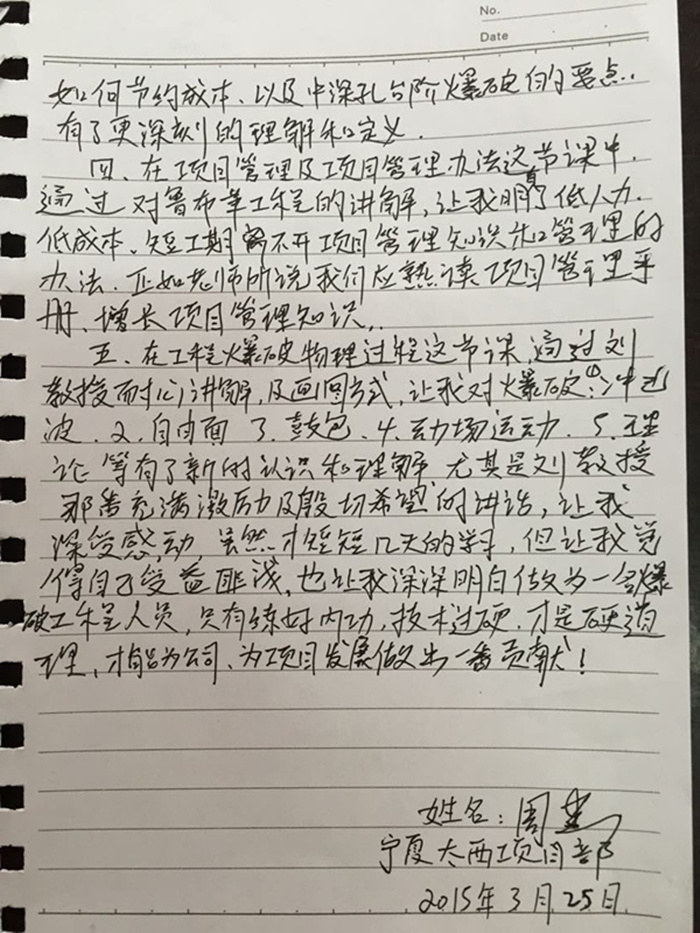 No.
Date
如何节约成本、以及中深孔台阶爆破的要点..
有了更深刻的理解和定义.
四、在项目管理及项目管理办法这节课中.
通过对鲁布革工程的讲解,让我明了低人力.
低成本、短工期离不开项目管理知识和管理的
办法.正如老师所说我们应熟读项目管理手
册、增长项目管理知识..
五、在工程爆破物理过程这节课,通过刘
教授耐心讲解,及画图方式,让我对爆破①.冲击
波.2.自由面 3.鼓包.4.动场运动.5.理
论等有了新的认识和理解 尤其是刘教授
那番充满激历及殷切希望的讲话,让我
深受感动,虽然才短短几天的学习,但让我觉
得自己受益匪浅,也让我深深明白做为一名爆
破工程人员,只有练好内功,技术过硬.才是硬道
理,才能为公司、为项目发展做出一番贡献!
姓名:周
宁夏太西项目部
2015年3月25日